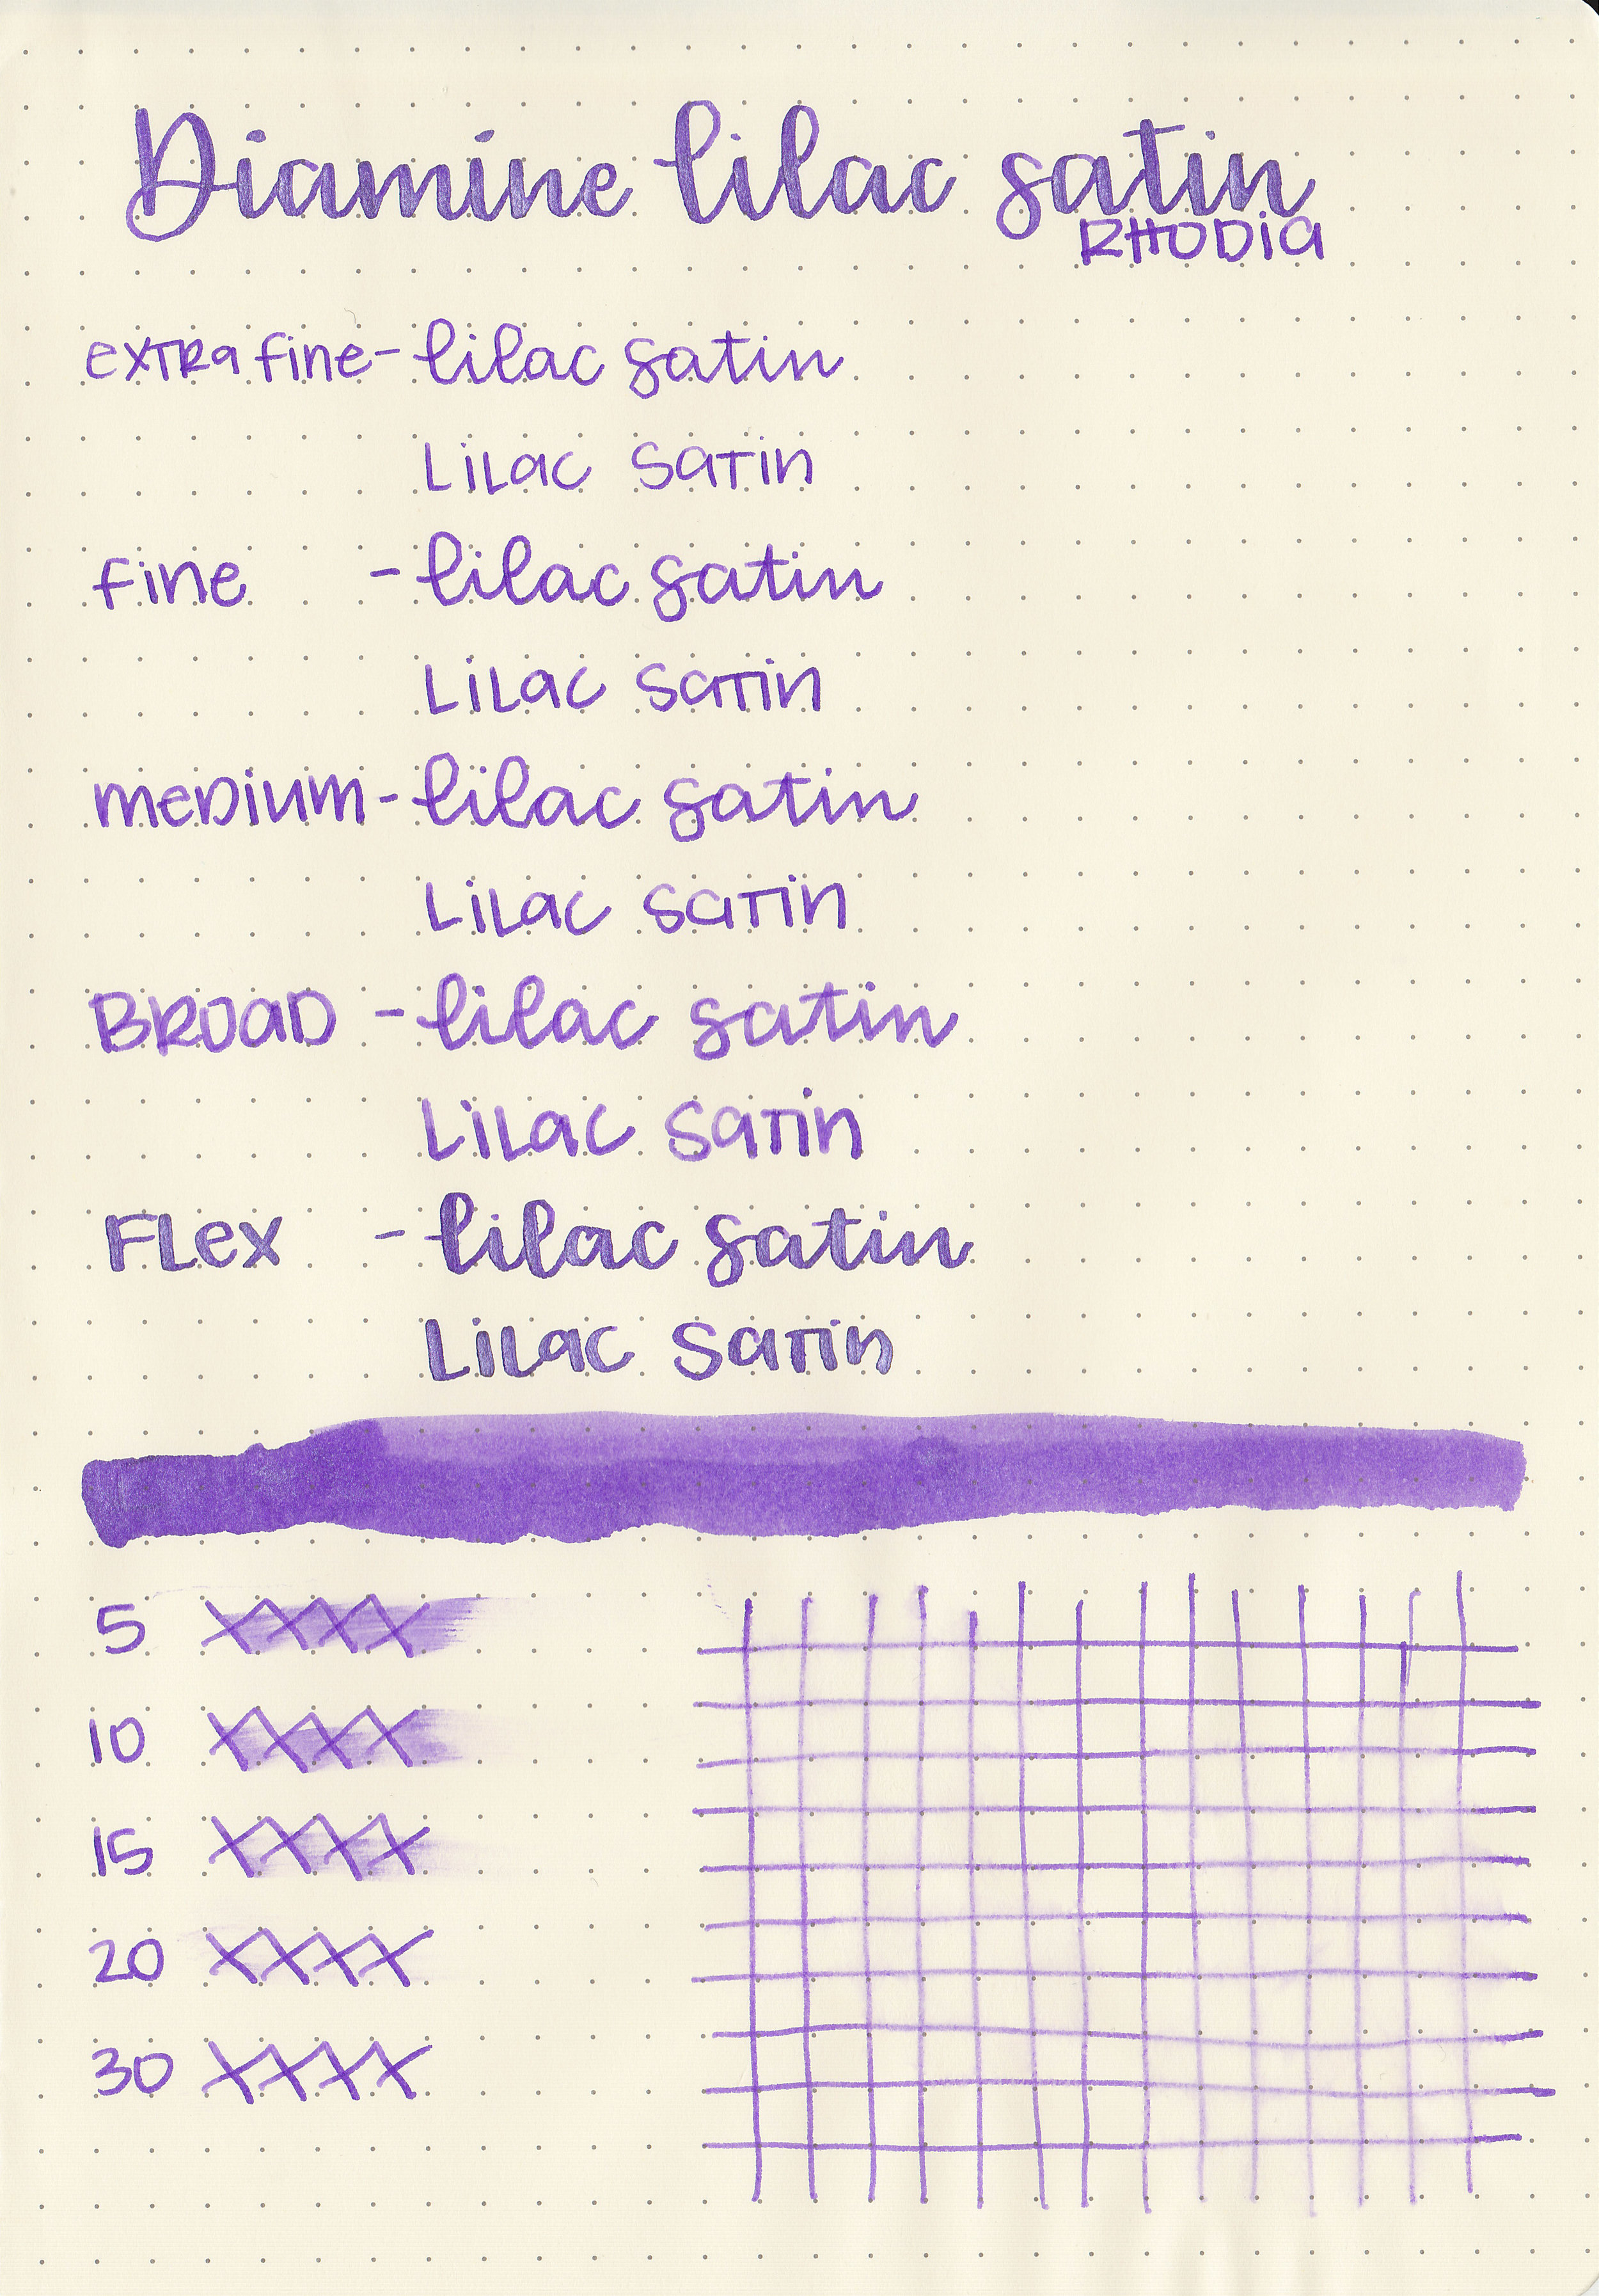 Diamine lilac satin
RHODIA
extra fine - lilac satin
Lilac Satin
fine - lilac satin
Lilac Satin
medium - lilac satin
Lilac Satin
Broad - lilac satin
Lilac Satin
Flex - lilac satin
Lilac Satin
5 XXXX
10 XXXX
15 XXXX
20 XXXX
30 XXXX